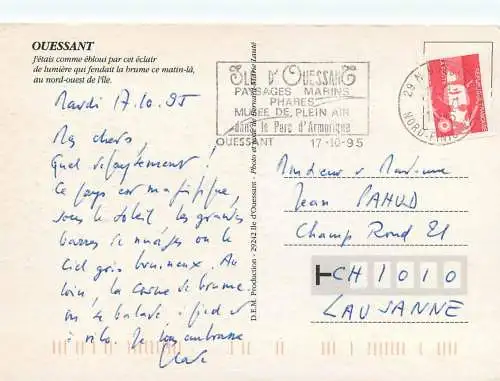 OUESSANT
J'étais comme ébloui par cet éclair
de lumière qui fendait la brume ce matin-là,
au nord-ouest de l'île.
Mardi 17.10.95
Mes chers,
Quel dépaysement !
Ce pays est magnifique
sous le soleil, les grandes
barres de nuages ou le
ciel gris bruineux. Au
loin, la corne de brume.
à pied et
à vélo. Je vous embrasse
D.E.M. Production - 29242 Ile d'Ouessant - Photo et texte de Bernard-Marie Lauté
ILE D'OUESSANT
PAYSAGES MARINS
PHARES
MUSÉE DE PLEIN AIR
dans le Parc d'Armorique
OUESSANT 17-10-95
29
NORD FINIS
Monsieur & Madame
Jean PAHUD
Champ Rond 21
CH 1010
LAUSANNE